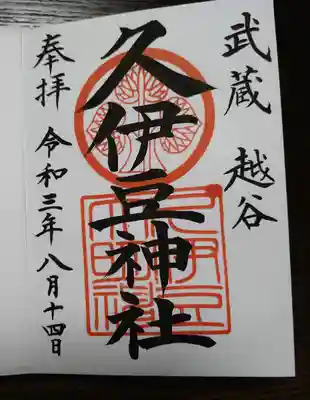 武蔵 越谷
久伊豆神社
奉拝 令和三年八月十四日